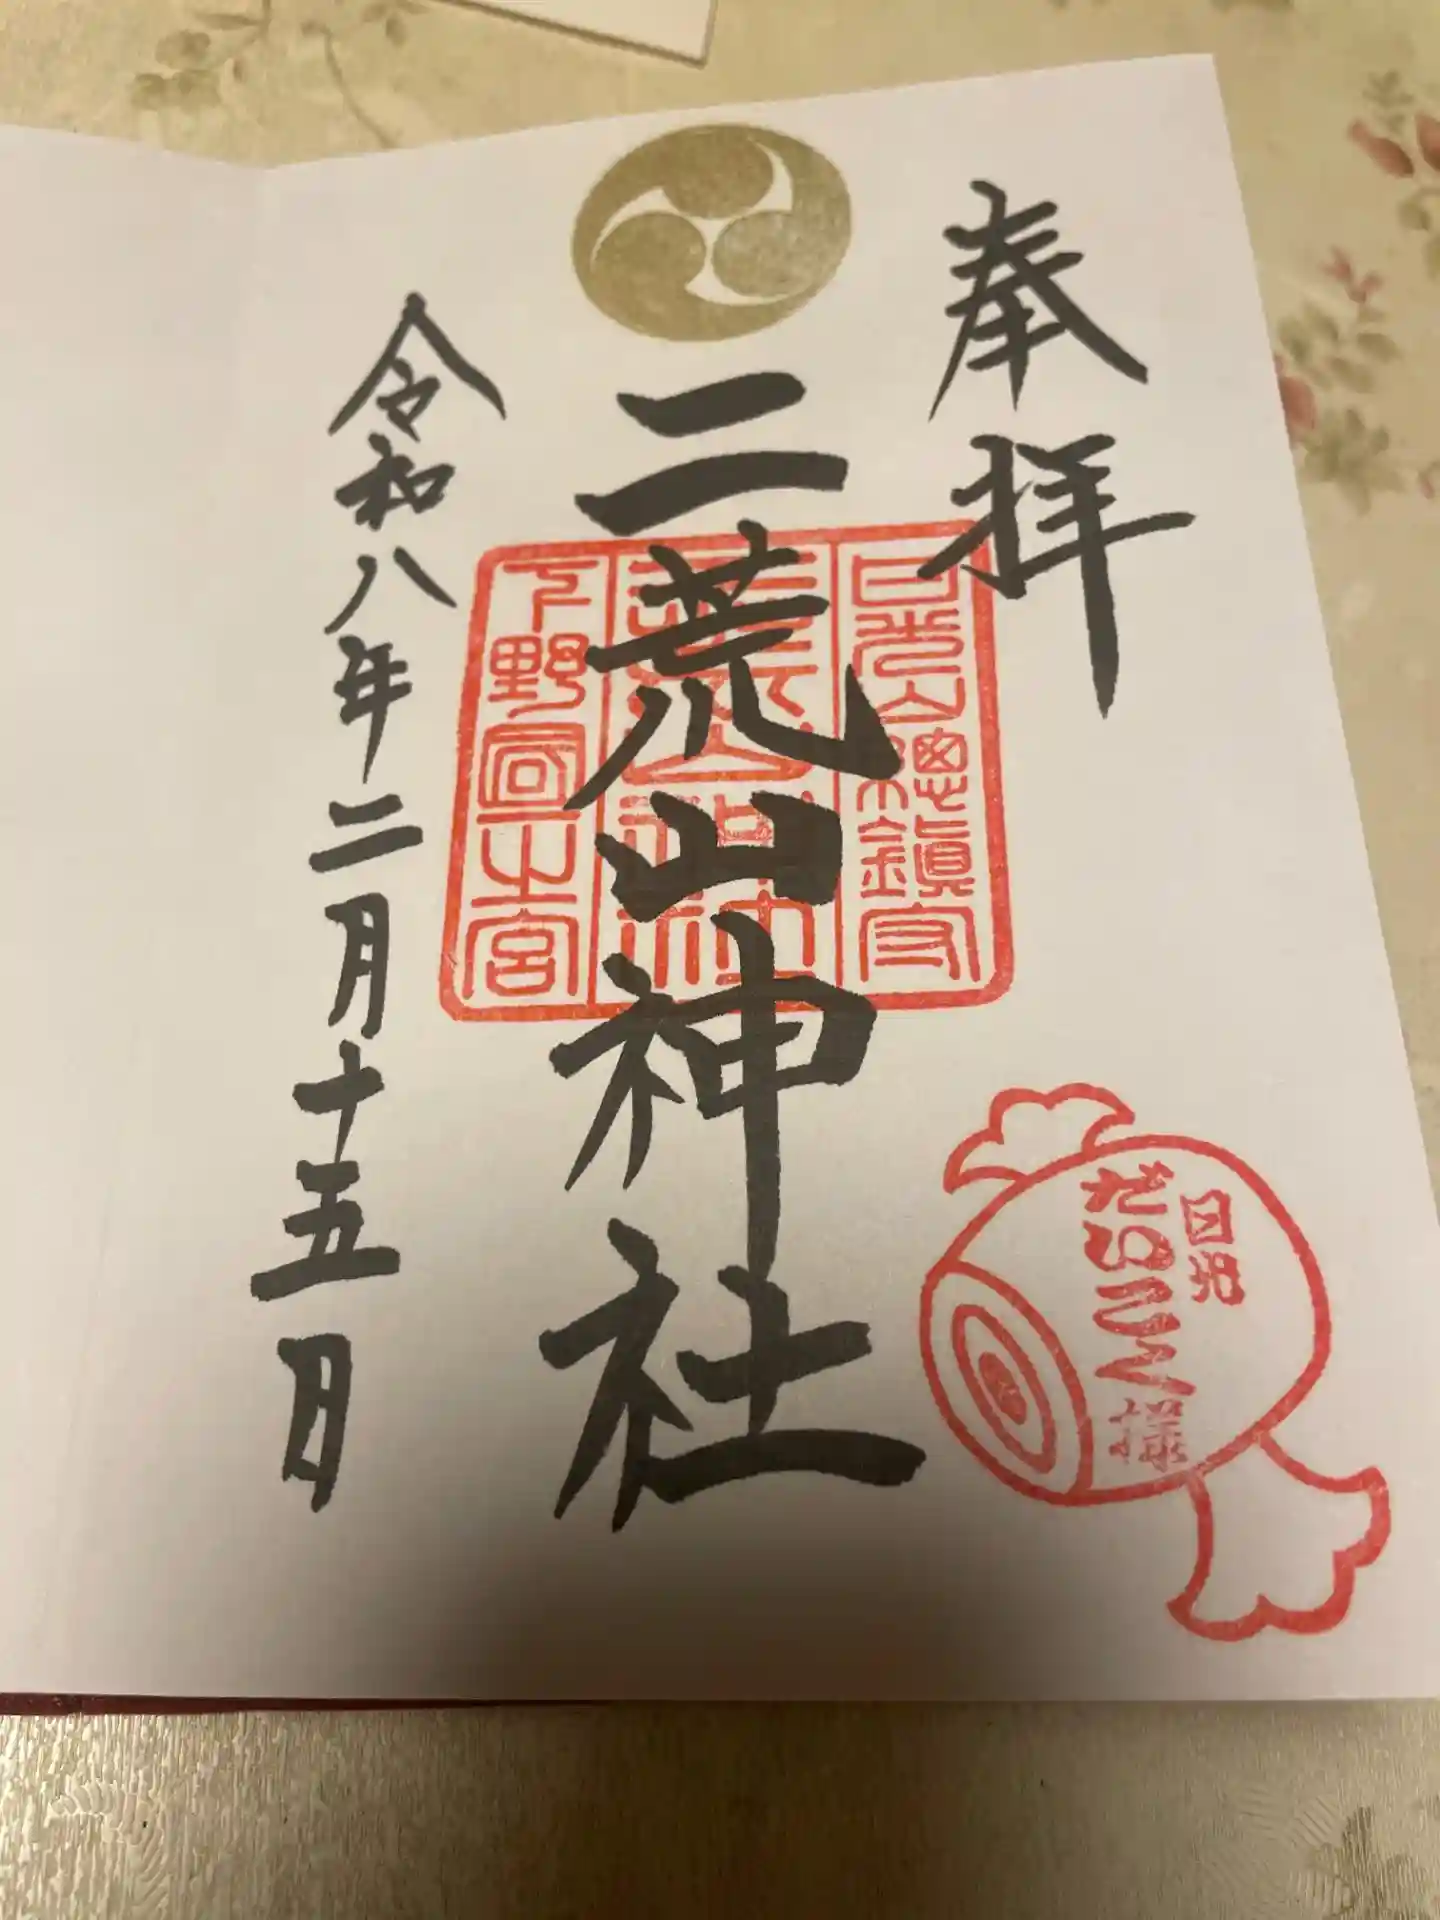 奉拝
日光山總鎮守
二荒山神社
二荒山神社
下野國一之宮
令和八年二月十五日
日光
だいこく様